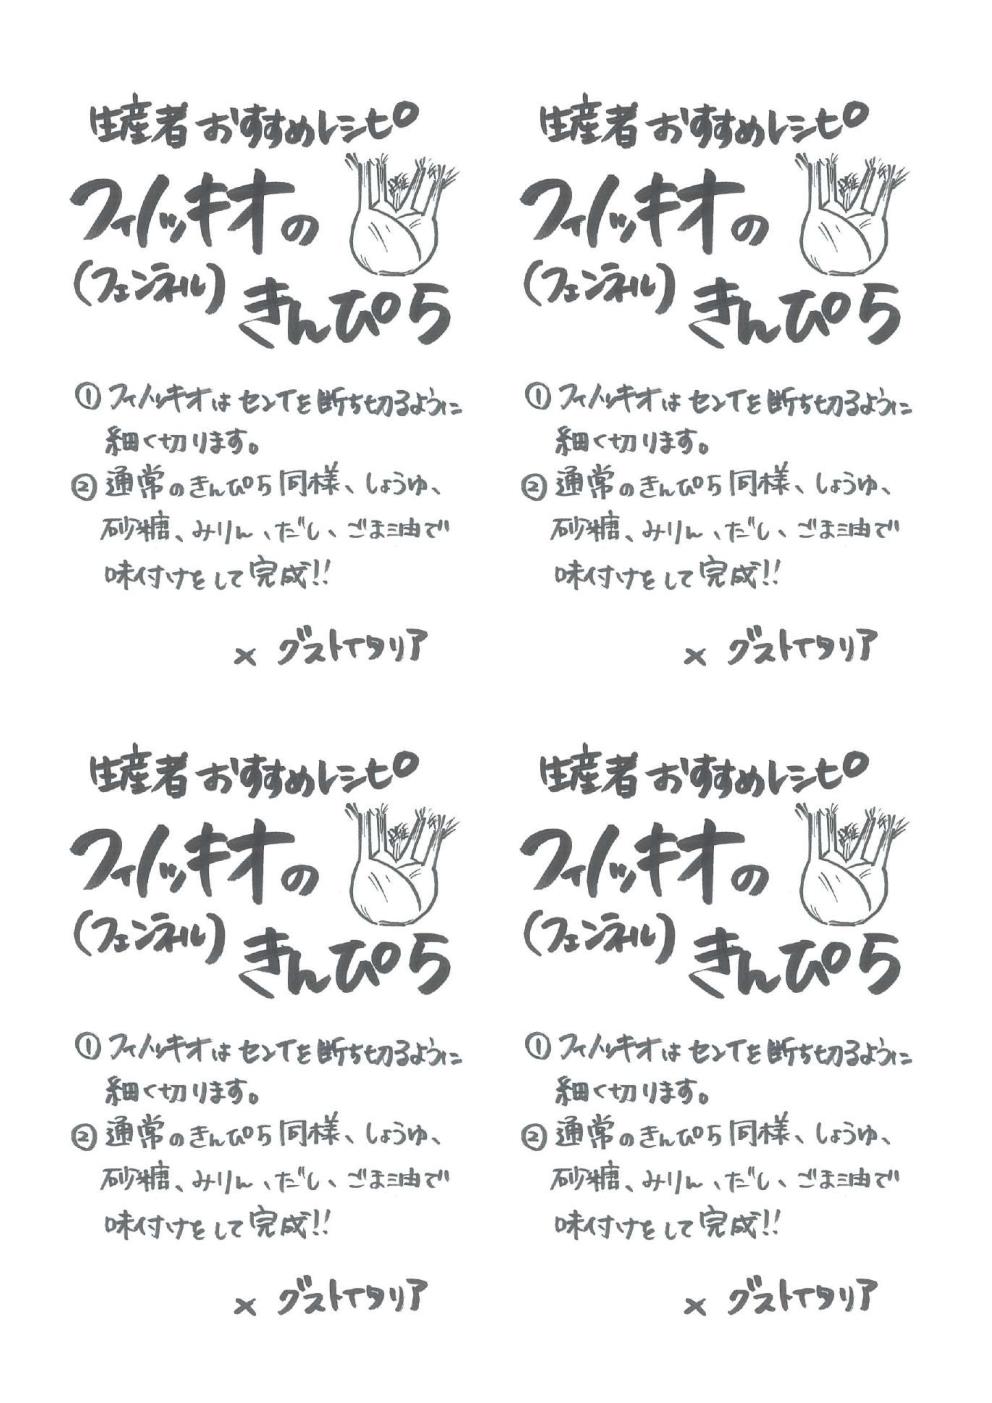 生産者おすすめレシピ
フィノッキオの
(フェンネル)
きんぴら
① フィノッキオはセンイを断ち切るように
細く切ります。
② 通常のきんぴら同様、しょうゆ、
砂糖、みりん、だし、ごま油で
味付けをして完成!!
× グストイタリア
生産者おすすめレシピ
フィノッキオの
(フェンネル)
きんぴら
① フィノッキオはセンイを断ち切るように
細く切ります。
② 通常のきんぴら同様、しょうゆ、
砂糖、みりん、だし、ごま油で
味付けをして完成!!
× グストイタリア
生産者おすすめレシピ
フィノッキオの
(フェンネル)
きんぴら
① フィノッキオはセンイを断ち切るように
細く切ります。
② 通常のきんぴら同様、しょうゆ、
砂糖、みりん、だし、ごま油で
味付けをして完成!!
× グストイタリア
生産者おすすめレシピ
フィノッキオの
(フェンネル)
きんぴら
① フィノッキオはセンイを断ち切るように
細く切ります。
② 通常のきんぴら同様、しょうゆ、
砂糖、みりん、だし、ごま油で
味付けをして完成!!
× グストイタリア